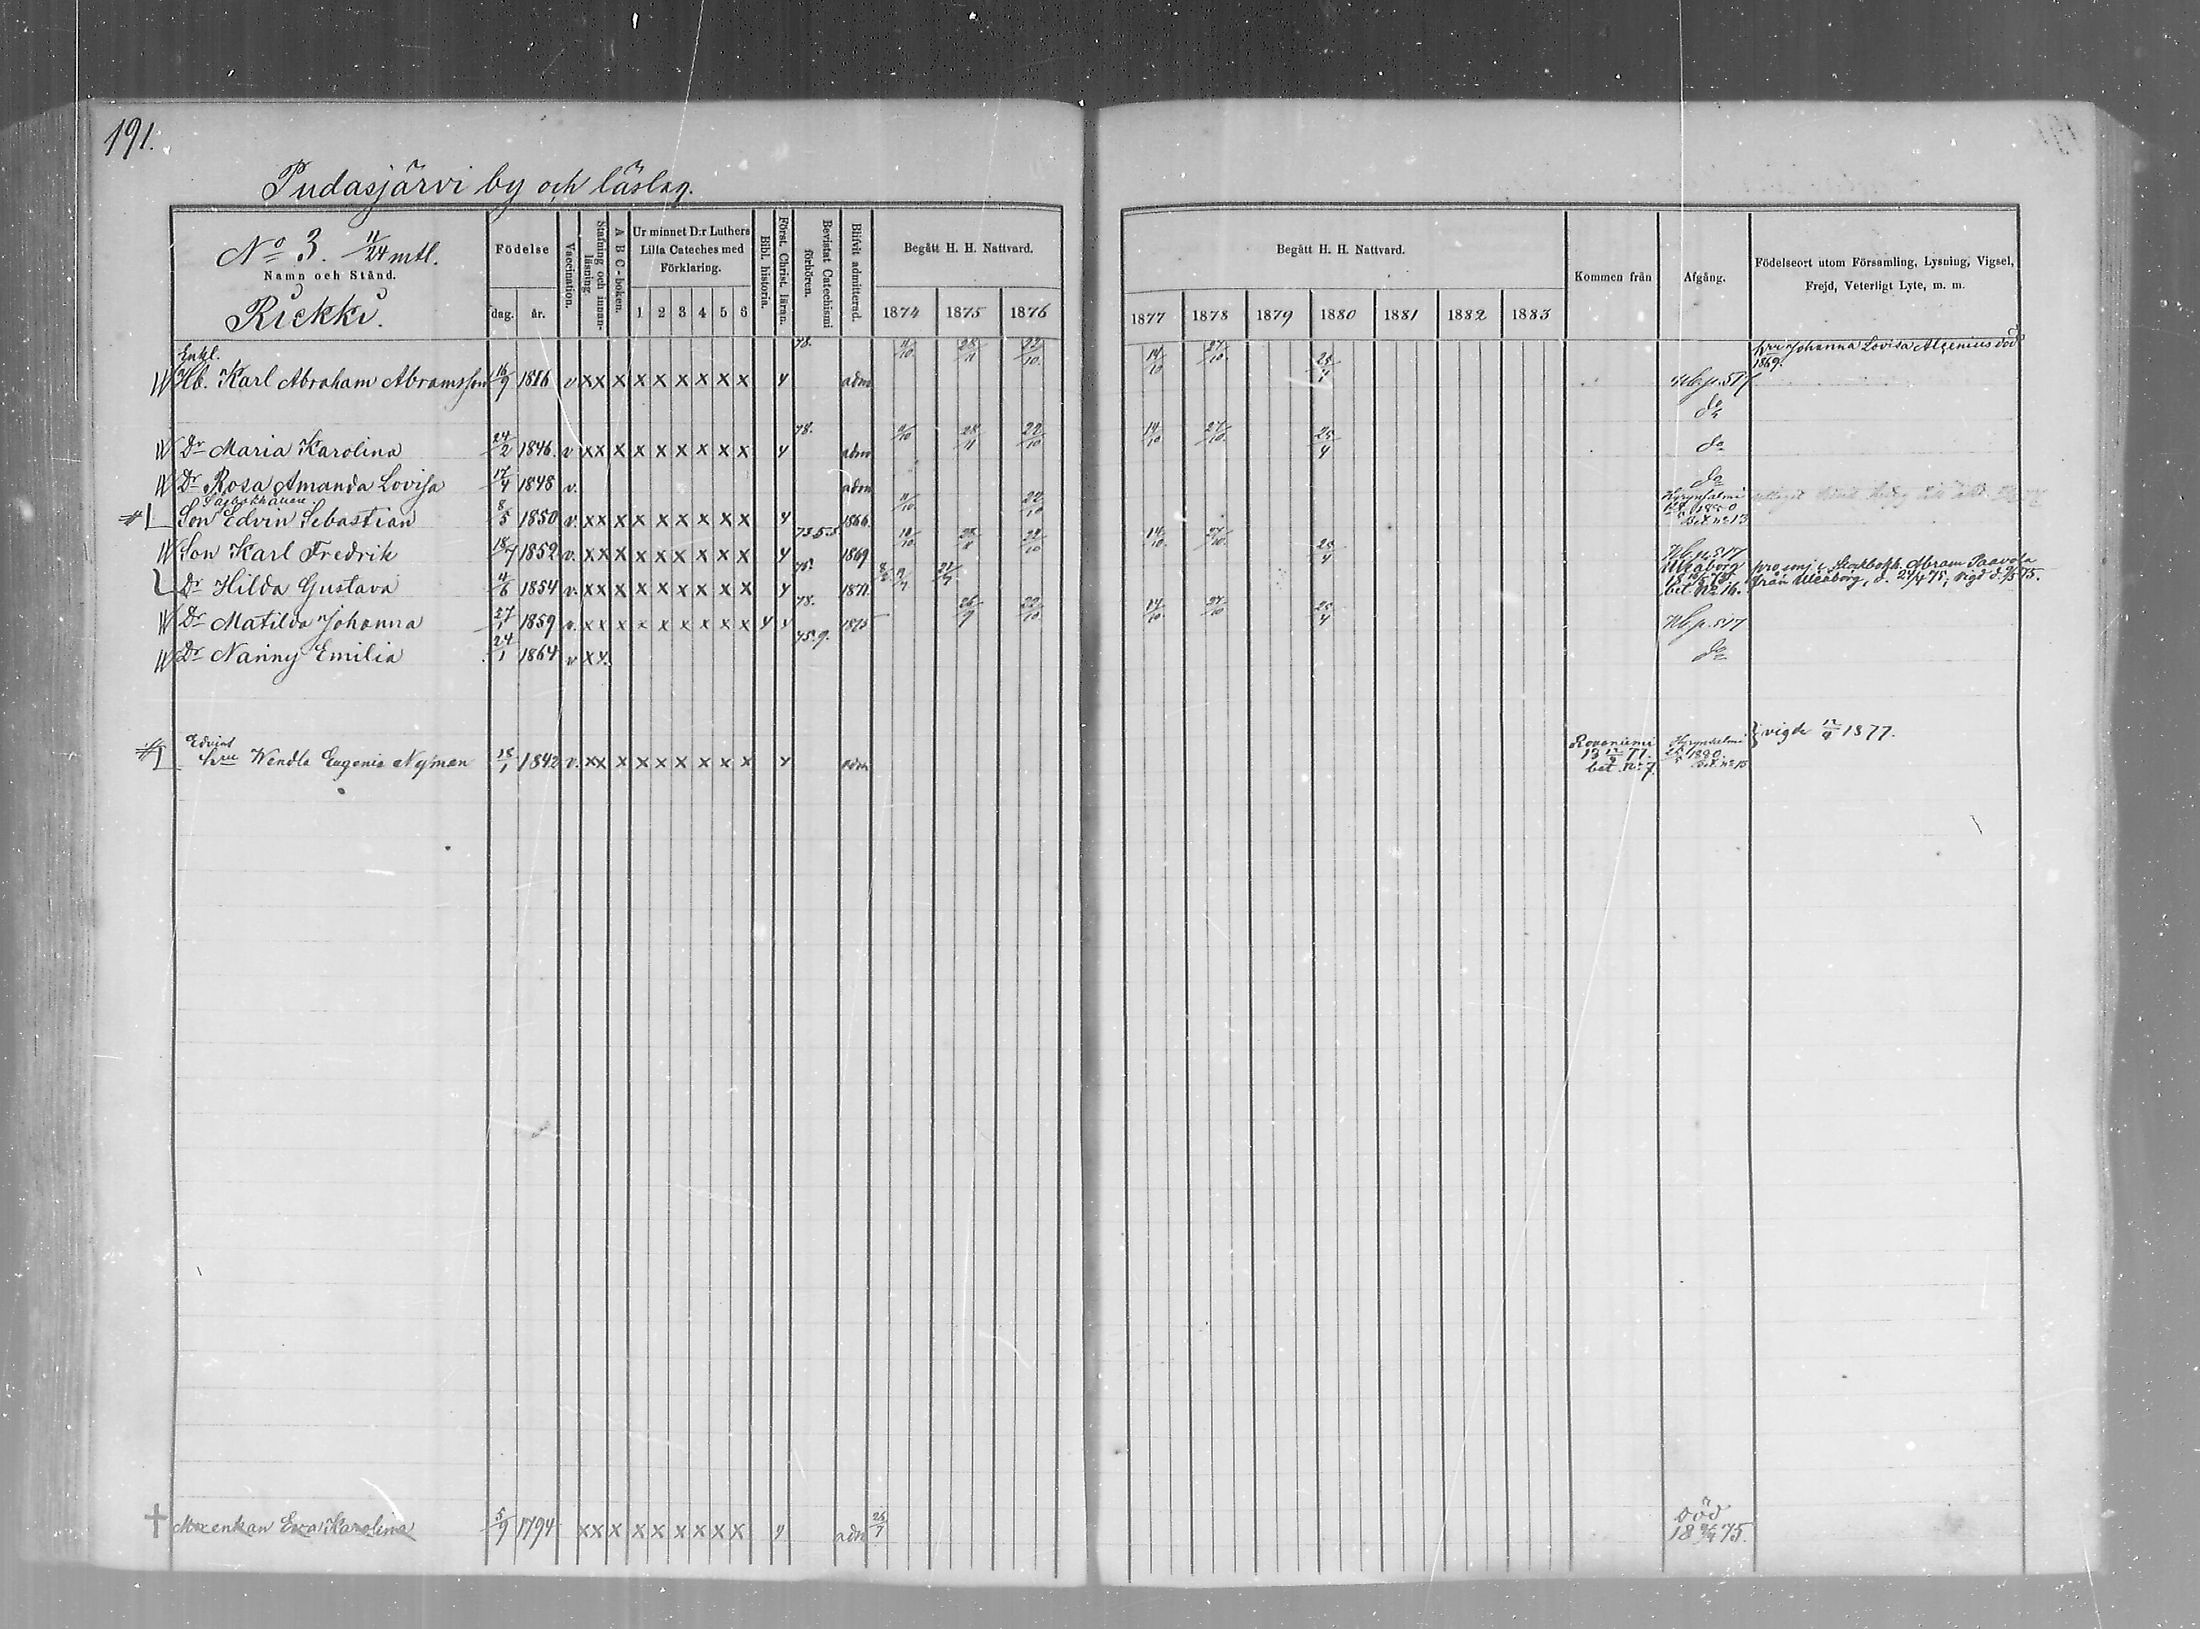 191.
Pudasjärvi by och läslag.
No 3. 11/24 mtl.
Namn och Stånd.
Riekki.
Födelse
dag. år.
Vaccination.
Stafning och innanläsning.
A B C-boken.
Ur minnet D:r Luthers Lilla Cateches med Förklaring.
1 2 3 4 5 6
Bibl. historia.
Först. Christ. läran.
Bevistat Catechismi förhören.
Blifvit admitterad.
Begått H. H. Nattvard.
1874 1875 1876
Begått H. H. Nattvard.
1877 1878 1879 1880 1881 1882 1883
Kommen från
Afgång.
Födelseort utom Församling, Lysning, Vigsel, Frejd, Veterligt Lyte, m. m.
Enkl. 78. 11/10 22/10 14/10 27/10 25/4 Johanna Lovisa Alcenius död 1869.
Hb. Karl Abraham Abramsson 16/9 1816 v xx x x x x x x x y adm Hb. p. 517
do
78. 22/10 14/10 27/10 25/4
Dr Maria Karolina 24/2 1846. v xx x x x x x x x y adm do
Dr Rosa Amanda Lovisa 17/4 1848 v. adm do
11/10 22/10 Hyrynsalmi 1880 bet. no 13
Son Edvin Sebastian 8/5 1850 v. xx x x x x x x x y 1866.
73.5.5 22/10 14/10 27/10 25/4
Son Karl Fredrik 18/7 1852 v. xx x x x x x x x y 1869 Hb. p. 517
Dr Hilda Gustava 4/6 1854 v. xx x x x x x x x y 1871. Uleåborg bet. No 16. Abram Paavola från Uleåborg, d. 25/4 75, vigd d. 9/5 75.
78. 26/9 22/10 14/10 27/10 25/4
Dr Matilda Johanna 27/1 1859 v. x x x x x x x x x y y 1875 Hb. p. 517
75.9.
Dr Nanny Emilia 24/1 1864 v xy. do
Edvins hru Wendla Eugenia Nyman 15/1 1842 v. xx x x x x x x x y adm Rovaniemi 18 77. bet. No 7. Hyrynsalmi 1880. bet. no 13 } vigde 12/4 1877.
† Enkan Eva Karolina 5/9 1794 xx x x x x x x x y adm 25/1 död 18 75.